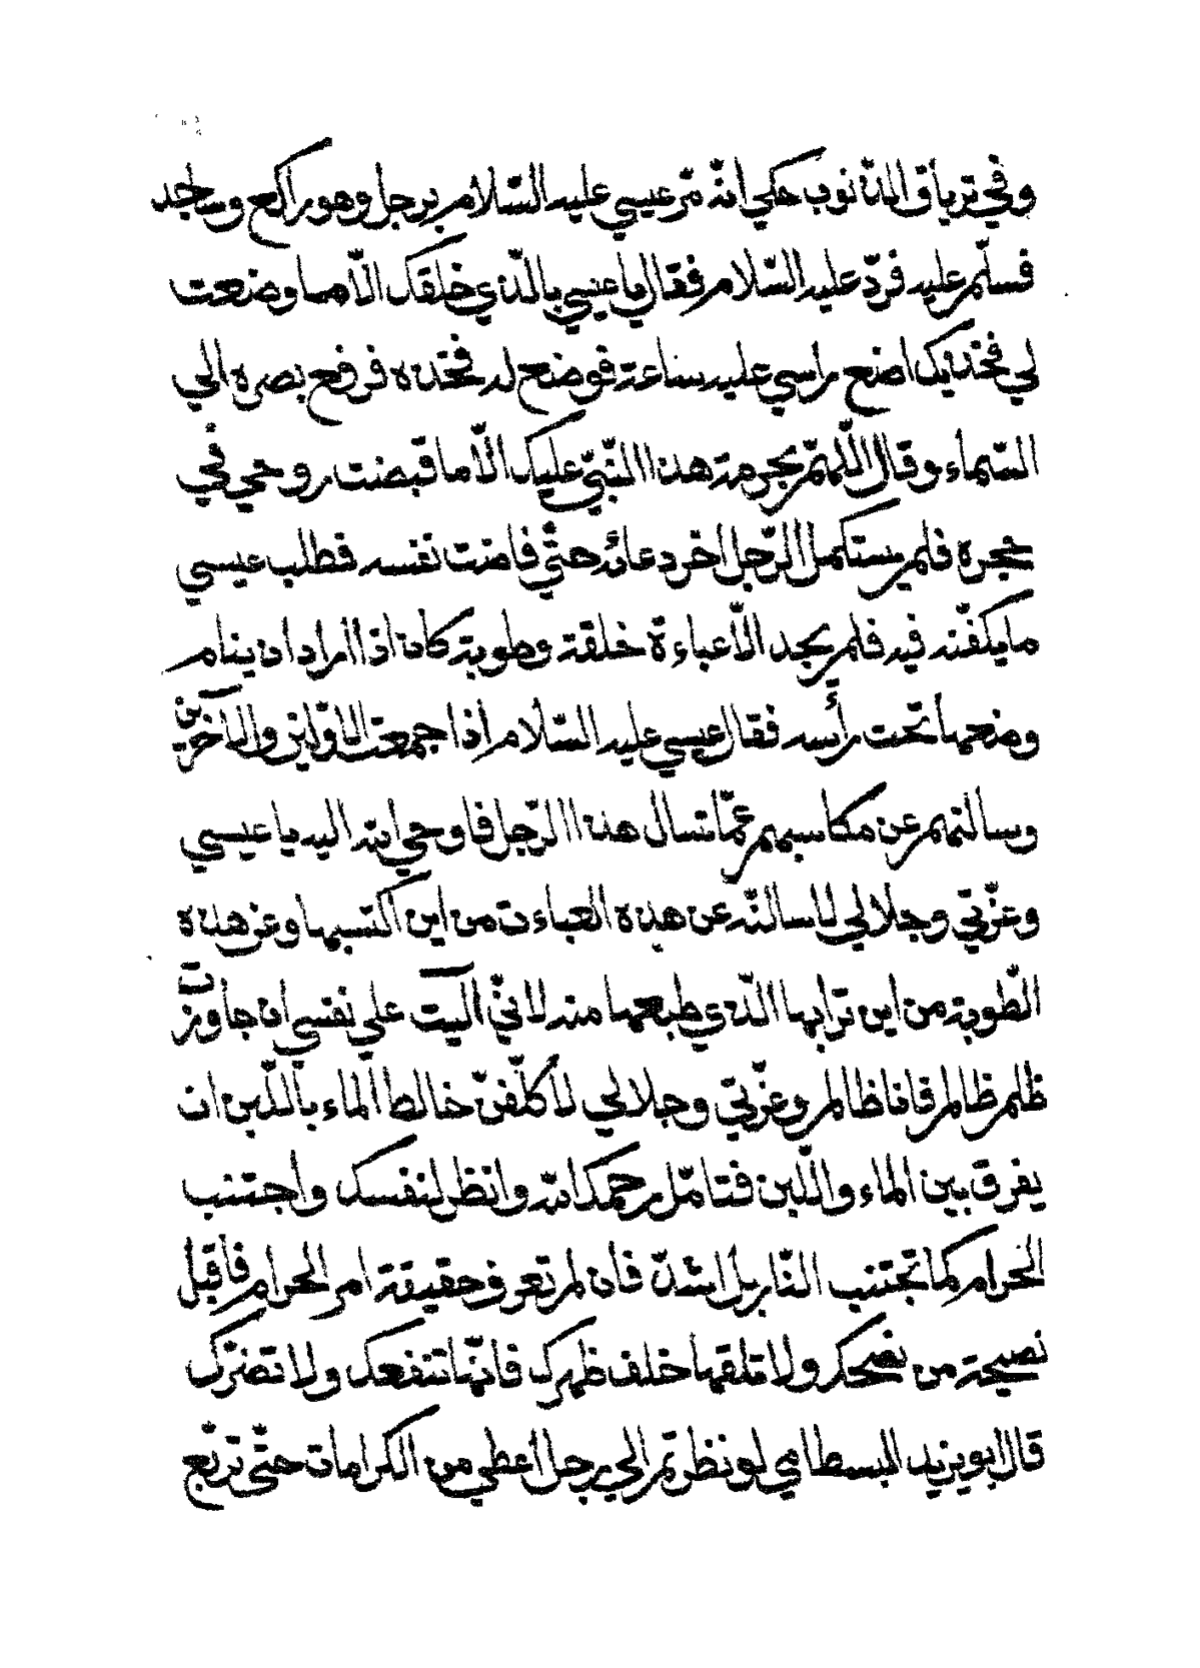 وفي ترياق الذنوب حكي انّه مرّ عيسي عليه السّلام برجل وهو راكع وساجد
فسلّم عليه فردّ عليه السّلام فقال يا عيسي بالّذي خلقك الّا ما وضعت
لي فخذيك اضع راسي عليه ساعة فوضع له فخذه فرفع بصره الي
السّماء وقال اللّهمّ بحرمة هذا النّبيّ عليك الّا ما قبضت روحي في
حجره فلم يستكمل الرّجل اخر دعائه حتّي فاضت نفسه فطلب عيسي
ما يكفّنه فيه فلم يجد الّا عباءة خلقة وطوبة كان اذا اراد ان ينام
وضعها تحت رأسه فقال عيسي عليه السّلام اذا جمعت الاوّلين والآخرين
وسالتهم عن مكاسبهم عمّا تسال هذا الرّجل فاوحي الله اليه يا عيسي
وعزّتي وجلالي لاسالنّه عن هذه العباءت من اين اكتسبها وعن هذه
الطّوبة من اين ترابها الّذي طبعها منه لانّي آليت علي نفسي ان جاوزت
ظلم ظالم فانا ظالم وعزّتي وجلالي لأكلّفنّ خالط الماء باللّبن ان
يفرق بين الماء واللّبن فتامّل رحمك الله وانظر لنفسك واجتنب
الحرام كما تجتنب النّار بل اشدّ فان لم تعرف حقيقة امر الحرام فاقبل
نصيحة من نصحك ولا تلقها خلف ظهرك فانّها تنفعك ولا تضرّك
قال ابو يزيد البسطامي لو نظرتم الي رجل أعطي من الكرامات حتّي تربّع